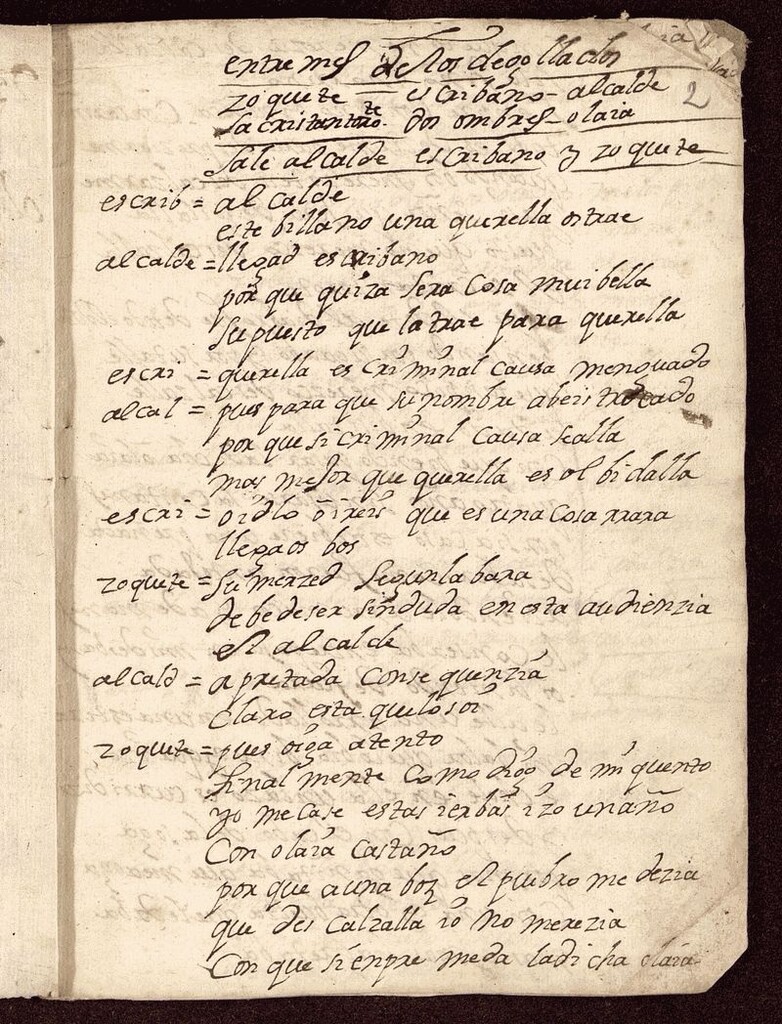 entremes de los degollados
2
zoquete escribano - alcalde
sacristan dos ombres olaia
sale alcalde escribano y zoquete
escrib = alcalde
este billano una querella os trae
alcalde = llegad escribano
porque quiza sera cosa mui bella
supuesto que la trae para querella
escri = querella es criminal causa menguado
alcal = pues para que su nombre abeis trocado
porque si criminal causa se alla
mas mejor que querella es olbidalla
escri = oidlo oireis que es una cosa rrara
llegaos bos
zoquete = su merzed segun la bara
debe de ser sin duda en esta audienzia
el alcalde
alcald = apretada consequenzia
claro esta que lo soi
zoquete = pues oiga atento
finalmente como digo de mi quento
yo me case estas ierbas izo un año
con olaia castaño
por que a una boz el puebro me dezia
que descalzalla io no merezia
con que sienpre me da la dicha olaia